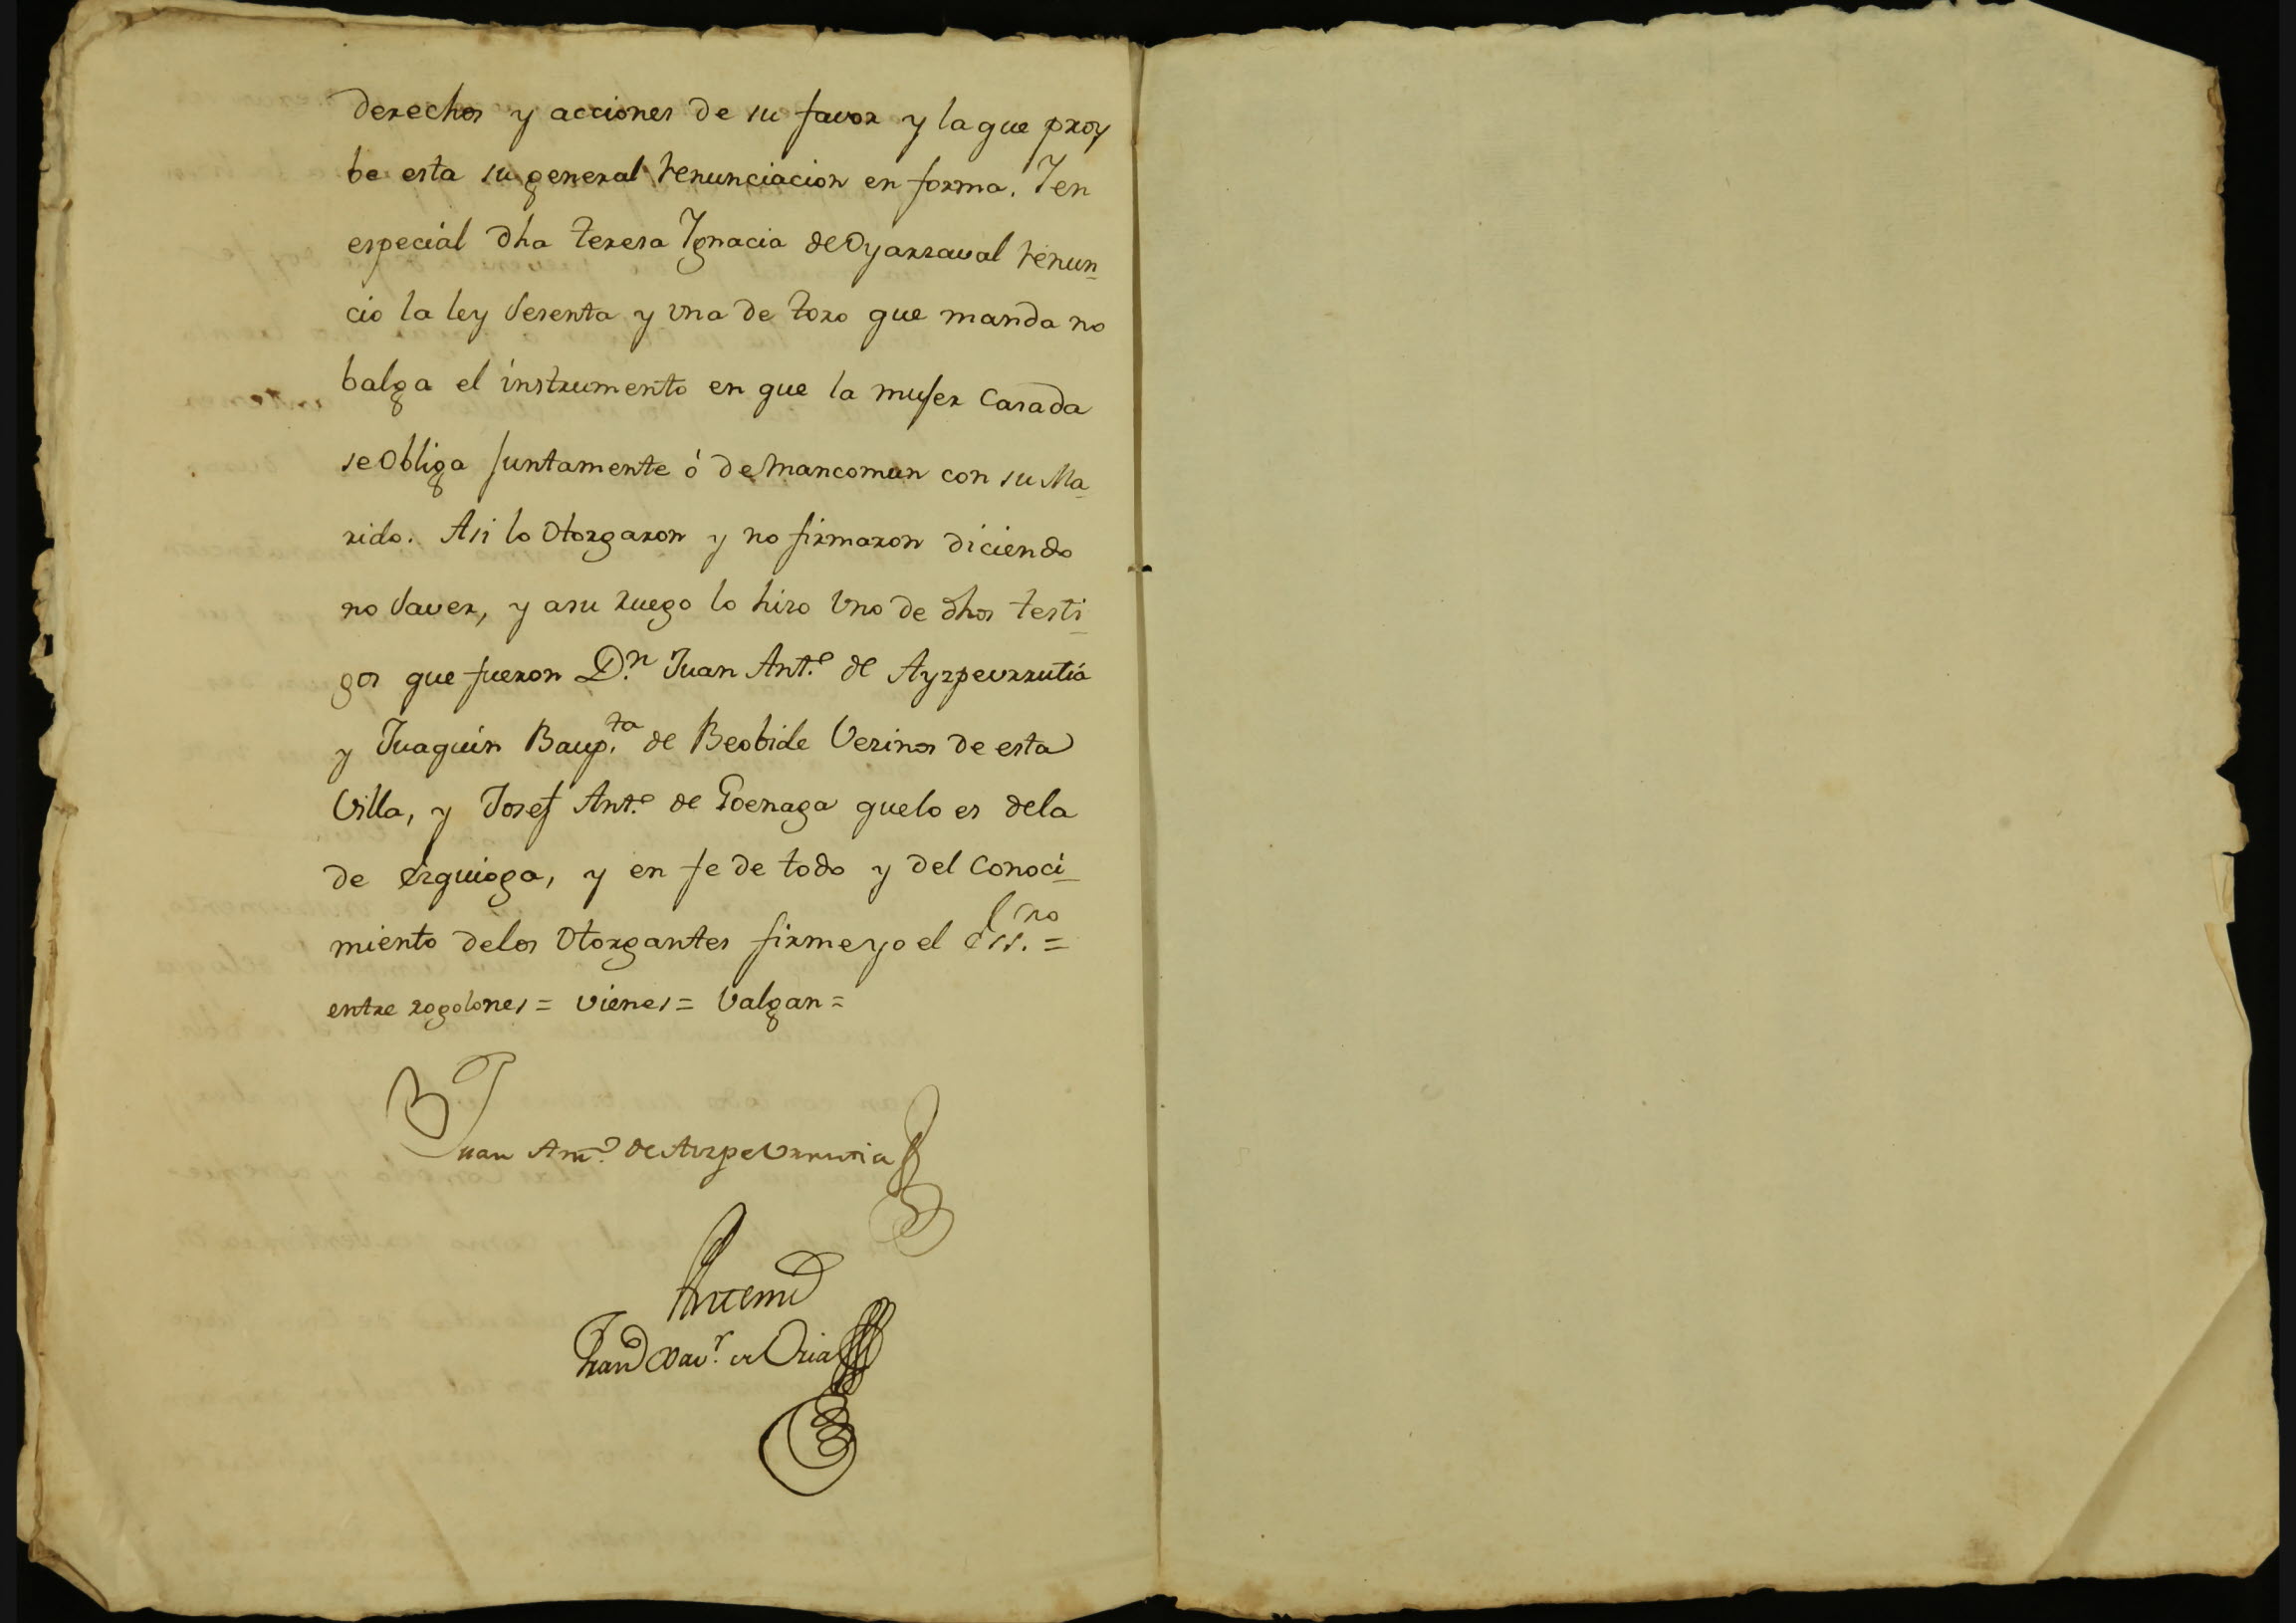 derechos y acciones de su favor y la que proy
be esta su general renunciacion en forma. Y en
especiál dha teresa Ygnacia de Oyarzaval renun-
cio la ley sesenta y una de toro que manda no
balga el instrumento en que la muJer Casada
se Obliga Juntamente ó de Mancomun con su Ma-
rido. Asi lo Otorgaron y no firmaron diciendo
no Saver, y a su ruego lo hizo Uno de dhos testi-
gos que fueron Dn. Juan Anto. de Ayzpeurrutiá
y Juaquin Baupta. de Beobide Vezinos de esta
Villa, y Josef Anto. de Goenaga que lo es de la
de Ezquioga, y en fe de todo y del Conoci-
miento de los Otorgantes firme yo el Essno. =
entre rogolones = vienes = Valgan =
Juan Anto. de AizpeUrrutia
Antemi
Franco Xavr. de Oria